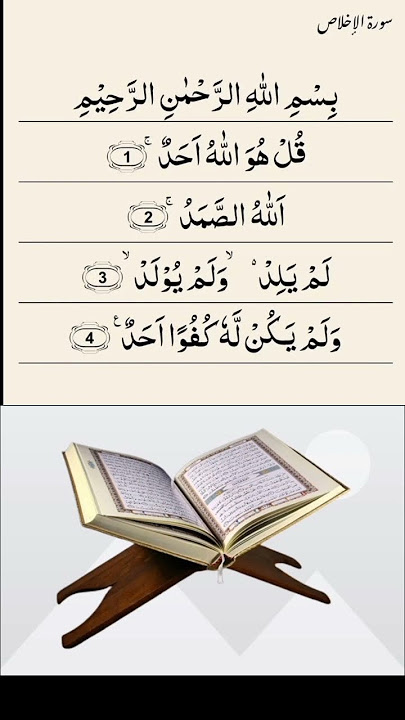 سورة الإخلاص
بِسْمِ اللّٰهِ الرَّحْمٰنِ الرَّحِيْمِ
قُلْ هُوَ اللّٰهُ اَحَدٌ ۚ 1
اَللّٰهُ الصَّمَدُ ۚ 2
لَمْ يَلِدْ ۙ وَلَمْ يُوْلَدْ ۙ 3
وَلَمْ يَكُنْ لَّهٗ كُفُوًا اَحَدٌ ۧ 4